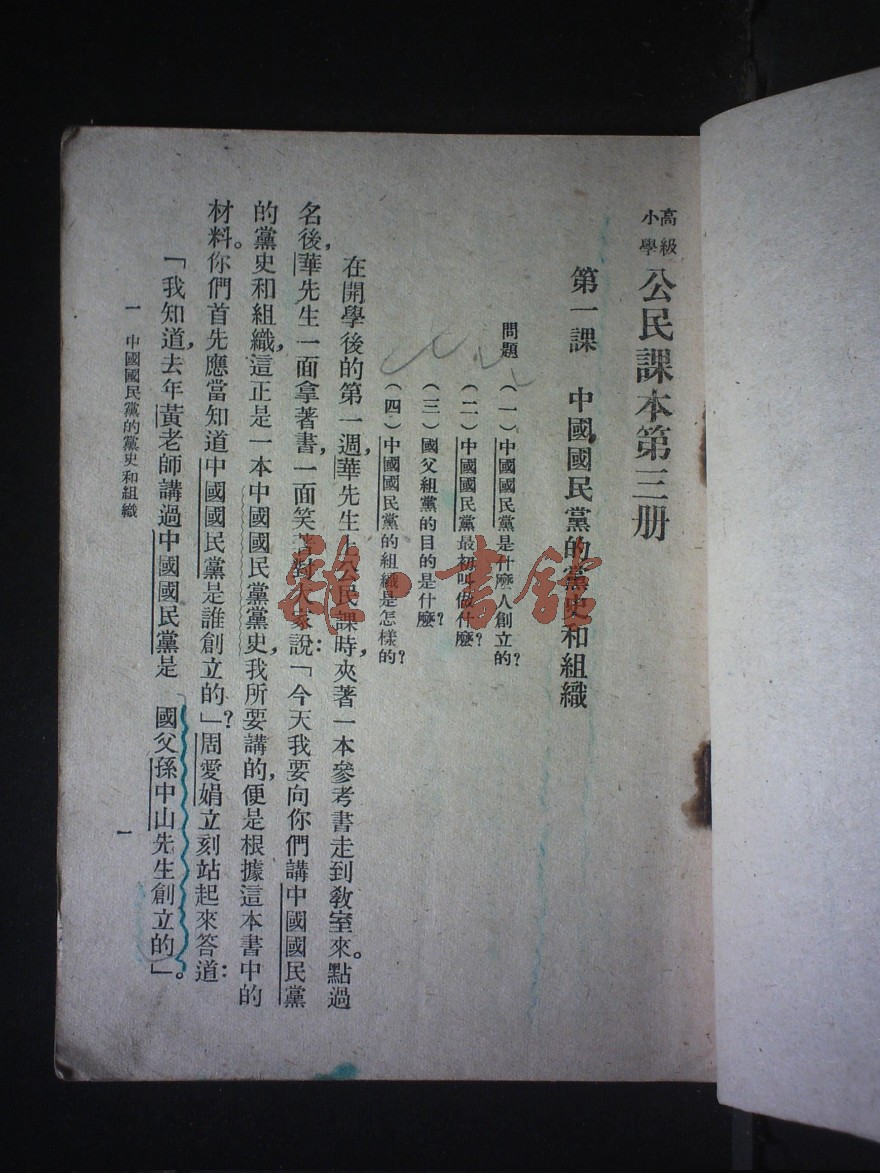 高級小學 公民課本第三册
第一課 中國國民黨的黨史和組織
問題 (一)中國國民黨是什麼人創立的?
(二)中國國民黨最初叫做什麼?
(三)國父組黨的目的是什麼?
(四)中國國民黨的組織是怎樣的?
在開學後的第一週,華先生上公民課時,夾著一本參考書走到教室來。點過
名後,華先生一面拿著書,一面笑著對大家說:「今天我要向你們講中國國民黨
的黨史和組織,這正是一本中國國民黨黨史,我所要講的,便是根據這本書中的
材料。你們首先應當知道中國國民黨是誰創立的」?周愛娟立刻站起來答道:
「我知道,去年黃老師講過中國國民黨是 國父孫中山先生創立的」。
一 中國國民黨的黨史和組織 一
雜·書館